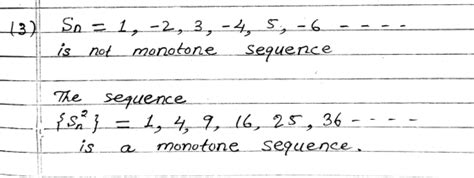 (3) Sn = 1, -2, 3, -4, 5, -6 - - - -
is not monotone sequence
The sequence
{Sn²} = 1, 4, 9, 16, 25, 36 - - - -
is a monotone sequence.